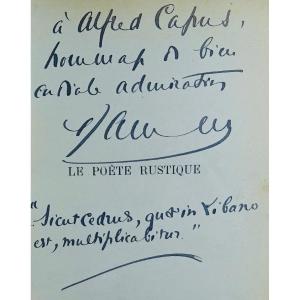 à Alfred Capus,
hommage de bien
cordiale admiration
Jammes
LE POÈTE RUSTIQUE
"Sicut Cedrus, quæ in Libano
est, multiplicabitur."